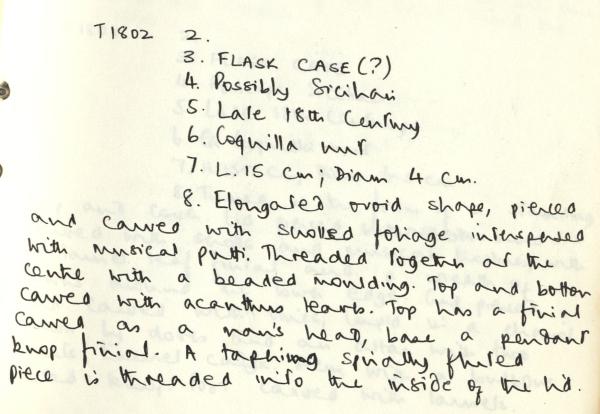 T1802 2.
3. FLASK CASE (?)
4. Possibly Sicilian
5. Late 18th Century
6. Coquilla nut
7. L. 15 cm; Diam 4 cm.
8. Elongated ovoid shape, pierced
and carved with scrolled foliage interspersed
with musical putti. Threaded together at the
centre with a beaded moulding. Top and bottom
carved with acanthus leaves. Top has a finial
carved as a man's head, base a pendant
knop finial. A tapering spirally fluted
piece is threaded into the inside of the lid.